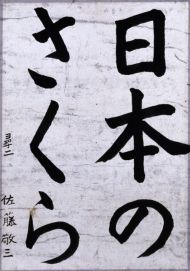 日本の
さくら
尋二 佐藤敬三